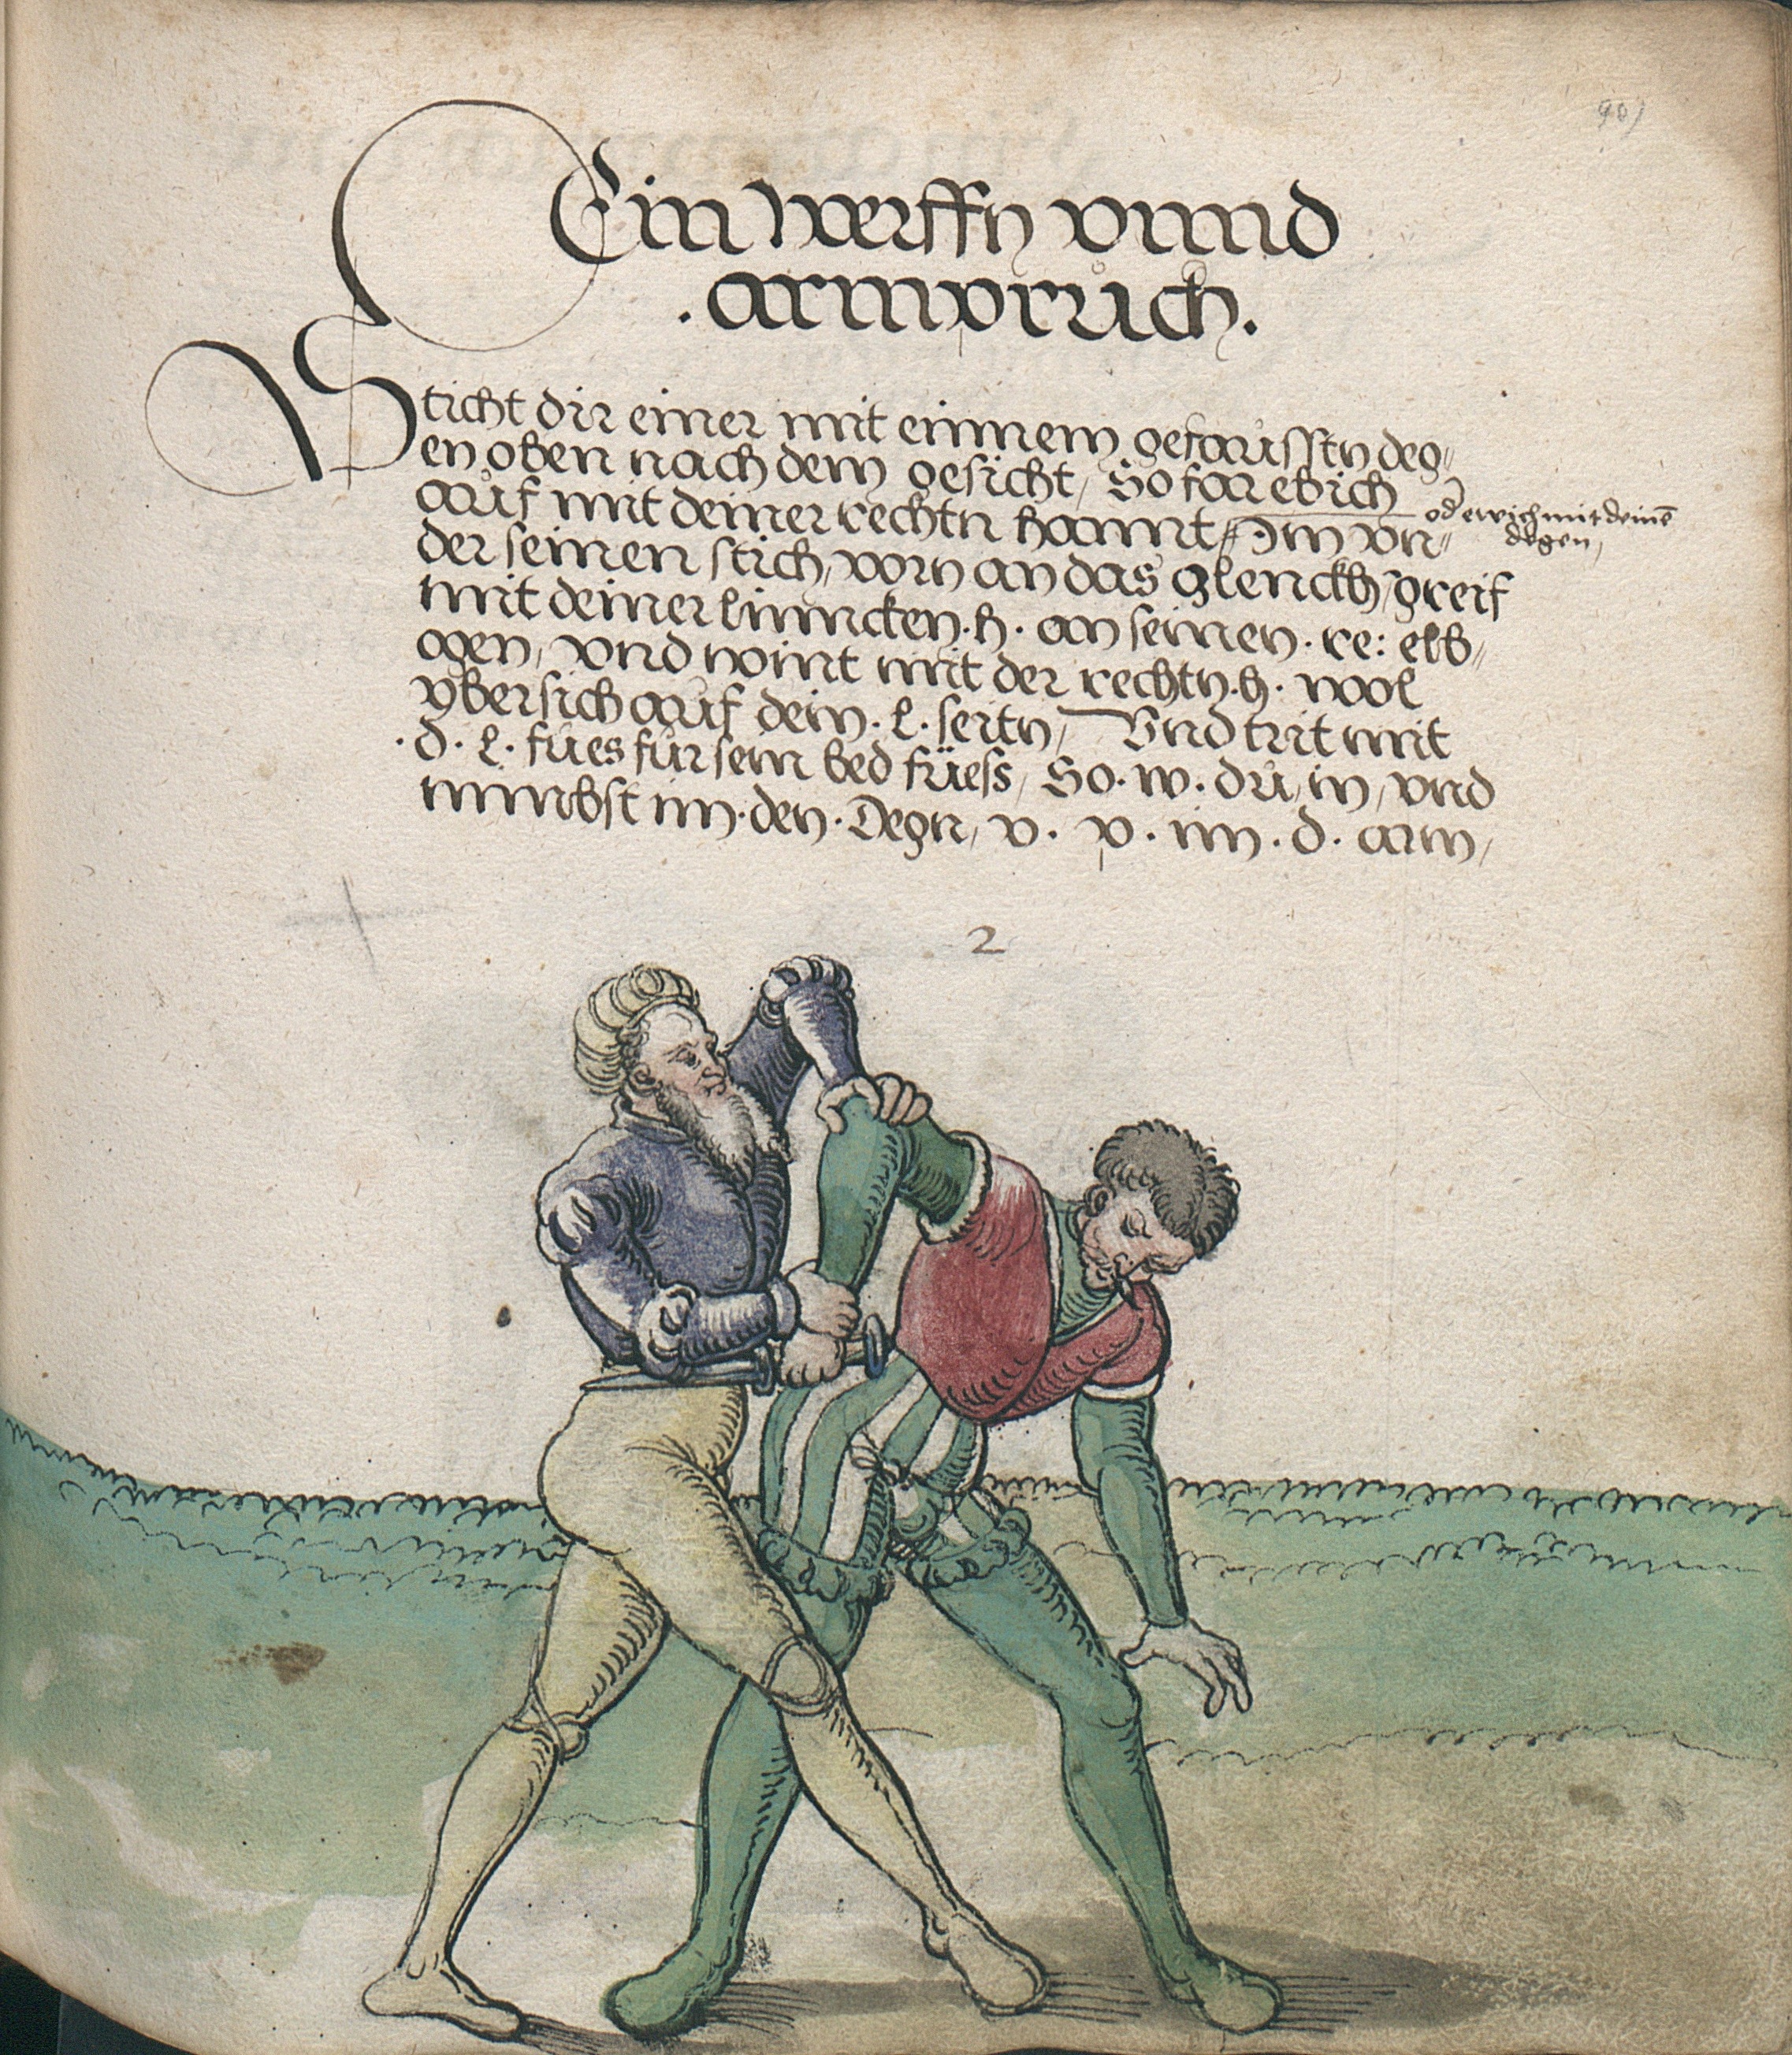 90
Ein werffn vnnd
. armpruch .
Sticht dir einer mit einnem gefaussten deg⸗
en oben nach dem gesicht / So far ebich
auf mit deiner rechtn hannt / Im vn⸗
od ebich mit deinē
degen /
der seinen stich / vorn an das glenckh / greif
mit deiner linncken . h . an seinen . re : elb⸗
ogen / vnd nimt mit der rechtn . h . wol
vbersich auf dein . l . seitn / Vnd trit mit
. d . l . fues für sein bed füess / So . w . du / in / vnd
nimbst im . den . Degn / v . p . im . d . arm /
2